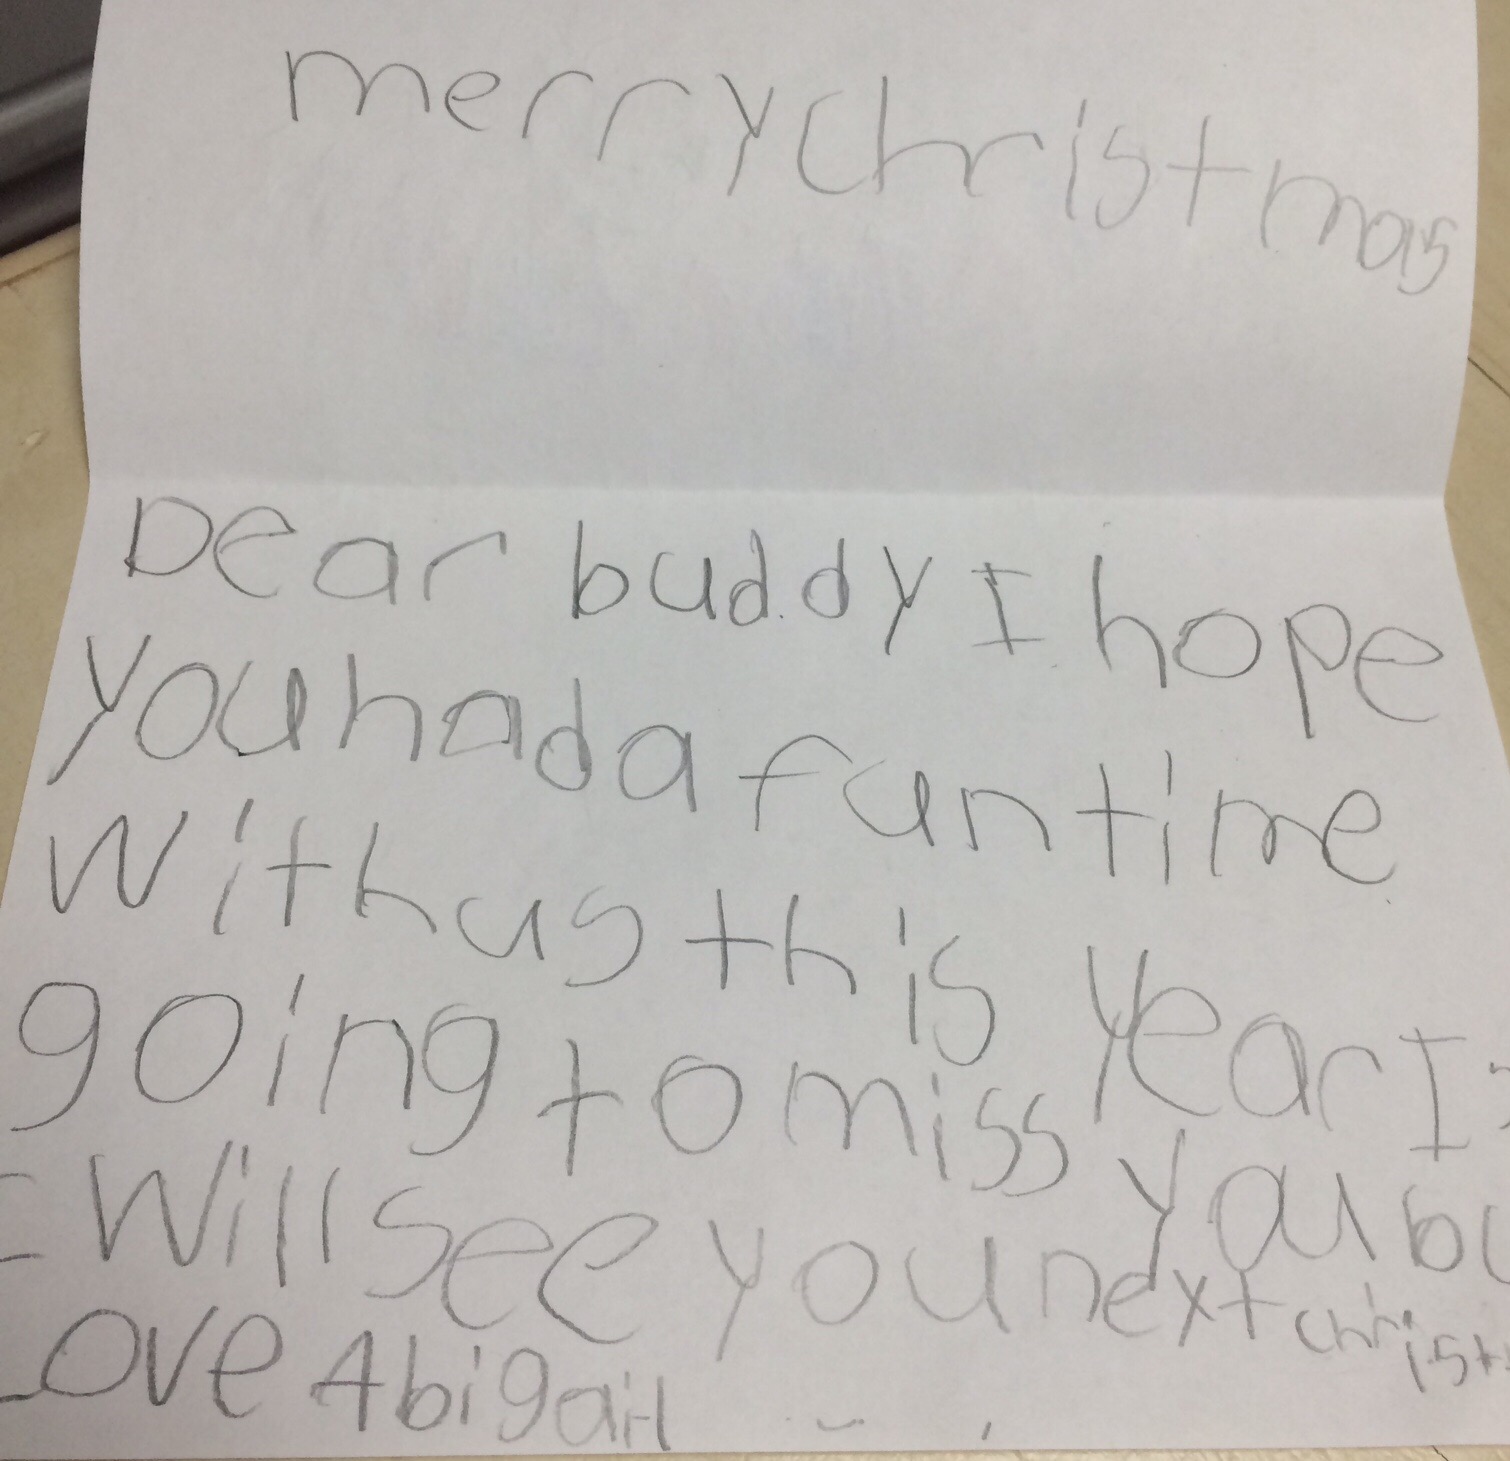 merry christmas
Dear buddy I hope
you had a fun time
with us this year I
going to miss you
I will see you next
Love Abigail